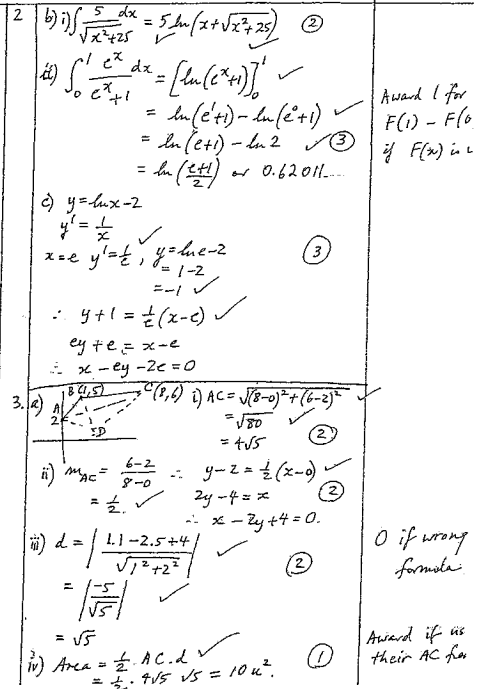 2 b) i) ∫ 5 dx / √x²+25 = 5 ln (x+√x²+25) ②
ii) ∫₀¹ eˣ / eˣ+1 dx = [ln (eˣ+1)]₀¹
= ln (e¹+1) – ln (e⁰+1)
= ln (e+1) – ln 2 ③
= ln (e+1 / 2) or 0.62011....
Award 1 for
F(1) – F(0
if F(x) is
c) y = ln x – 2
y' = 1/x
x = e y' = 1/e , y = ln e – 2 ③
= 1 – 2
= –1
∴ y + 1 = 1/e (x – e)
ey + e = x – e
∴ x – ey – 2e = 0
3. a) A 2 B (1,5) C (8,6) D i) AC = √(8–0)² + (6–2)²
= √80
= 4√5 ②
ii) m_AC = 6–2 / 8–0 ∴ y – 2 = ½ (x–0)
= ½. 2y – 4 = x ②
∴ x – 2y + 4 = 0.
iii) d = | 1.1 – 2.5 + 4 / √1² + 2² | ②
= | –5 / √5 |
= √5
0 if wrong
formula
iv) Area = ½ . AC . d ①
= ½. 4√5 √5 = 10 u².
Award if us
their AC